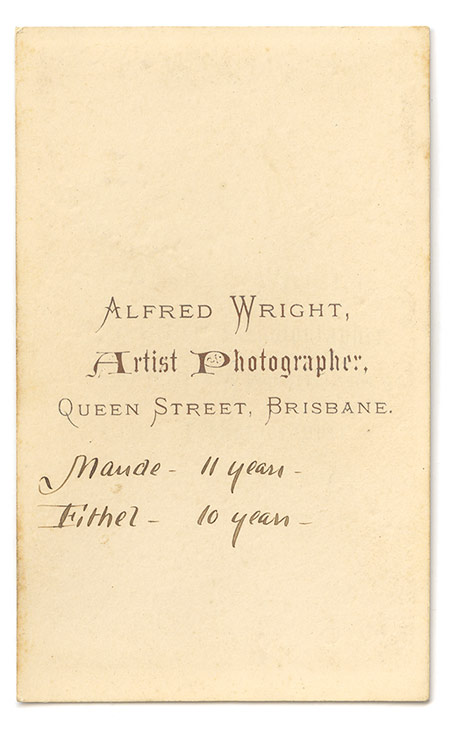 Alfred Wright,
Artist Photographer,
Queen Street, Brisbane.
Maude - 11 years -
Eithel - 10 years -